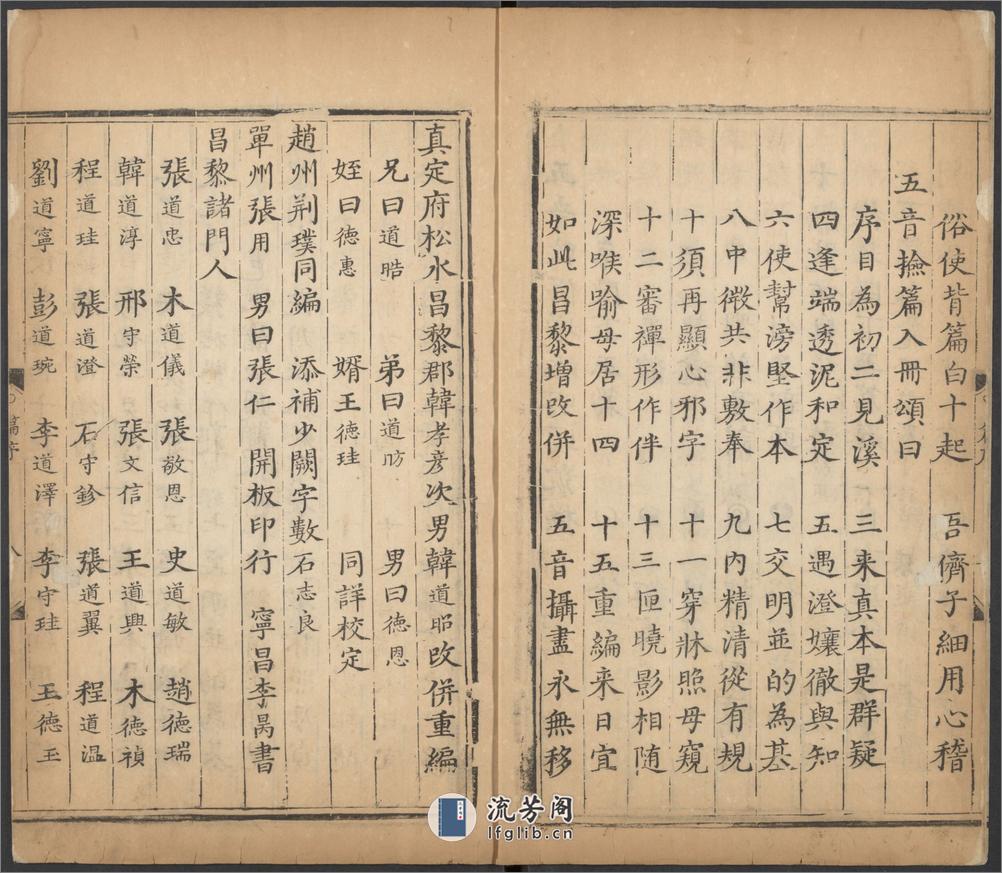 俗使背篇白十起 吾儕子細用心稽
五音撿篇入冊頌曰
序目為初二見溪 三来真本是群疑
四逢端透泥和定 五遇澄孃徹與知
六使幫滂堅作本 七交明並的為基
八中微共非敷奉 九内精清從有規
十須再顯心邪字 十一穿牀照母窺
十二審禪形作伴 十三匣曉影相随
深喉喻母居十四 十五重編来日宜
如此昌黎增改併 五音攝盡永無移
真定府松水昌黎郡韓孝彦次男韓道昭改併重編
兄曰道晧 弟曰道昉 男曰德恩
姪曰德惠 婿王德珪 同詳校定
趙州荆璞同編 添補少闕字數石志良
單州張用 男曰張仁 開板印行 寧昌李昺書
昌黎諸門人
張道忠 木道儀 張敬恩 史道敏 趙德瑞
韓道淳 邢守榮 張文信 王道興 木德禎
程道珪 張道澄 石守鉁 張道翼 程道温
劉道寧 彭道琬 李道澤 李守珪 王德玉
篇序
八
流芳阁
lfglib.cn